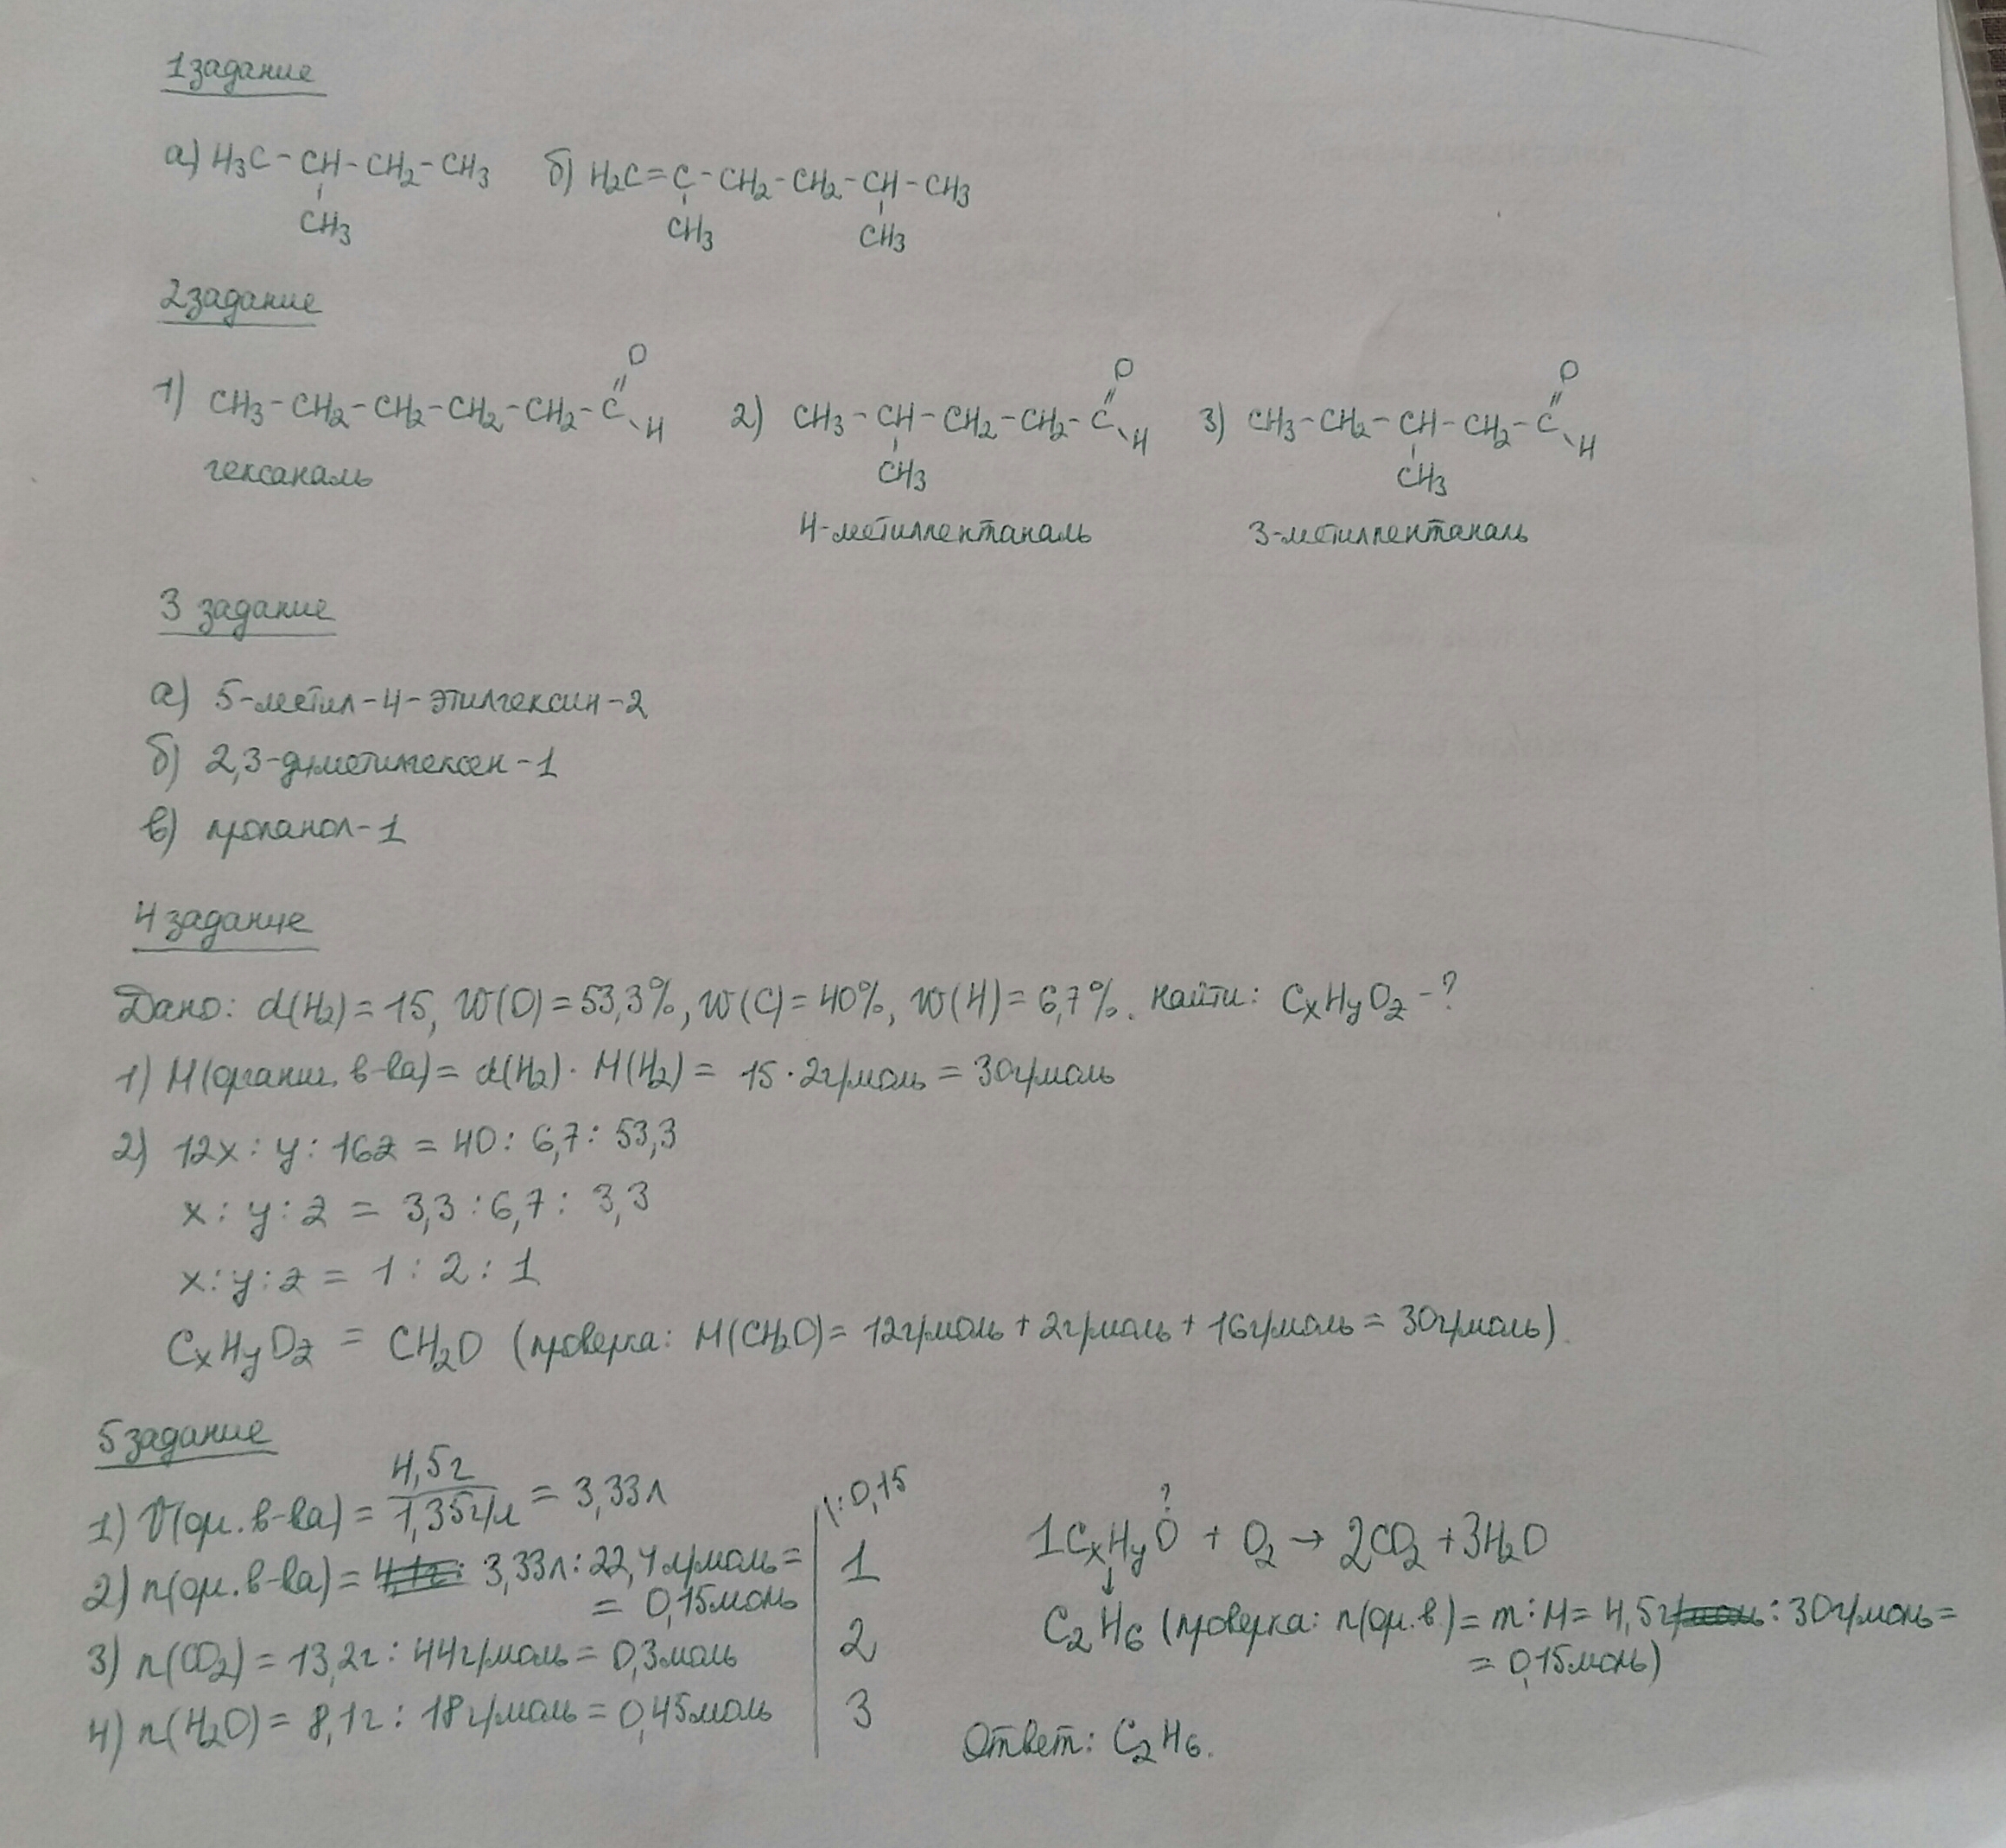 1 задание
а) H₃C-CH-CH₂-CH₃ б) H₂C=C-CH₂-CH₂-CH-CH₃
CH₃ CH₃ CH₃
2 задание
O O O
1) CH₃-CH₂-CH₂-CH₂-CH₂-C 2) CH₃-CH-CH₂-CH₂-C 3) CH₃-CH₂-CH-CH₂-C
H H H
гексаналь CH₃ CH₃
4-метилпентаналь 3-метилпентаналь
3 задание
а) 5-метил-4-этилгексин-2
б) 2,3-диметилгексен-1
в) пропанол-1
4 задание
Дано: d(H₂)=15, W(O)=53,3%, W(C)=40%, W(H)=6,7%. Найти: CₓHᵧO_z-?
1) M(органич. в-ва)= d(H₂)·M(H₂)= 15·2г/моль = 30г/моль
2) 12x:y:16z = 40:6,7:53,3
x:y:z = 3,3:6,7:3,3
x:y:z = 1:2:1
CₓHᵧO_z = CH₂O (проверка: M(CH₂O)= 12г/моль+2г/моль+16г/моль=30г/моль).
5 задание
1) V(орг. в-ва)= 4,5г/1,35г/л = 3,33л |:0,15
2) n(орг. в-ва)= 3,33л:22,4л/моль= 1
= 0,15моль
3) n(CO₂)=13,2г:44г/моль=0,3моль 2
4) n(H₂O)= 8,1г:18г/моль=0,45моль 3
?
1CₓHᵧO + O₂ → 2CO₂+3H₂O
↓
C₂H₆ (проверка: n(орг.в)=m:M=4,5г:30г/моль=
= 0,15моль)
Ответ: C₂H₆.